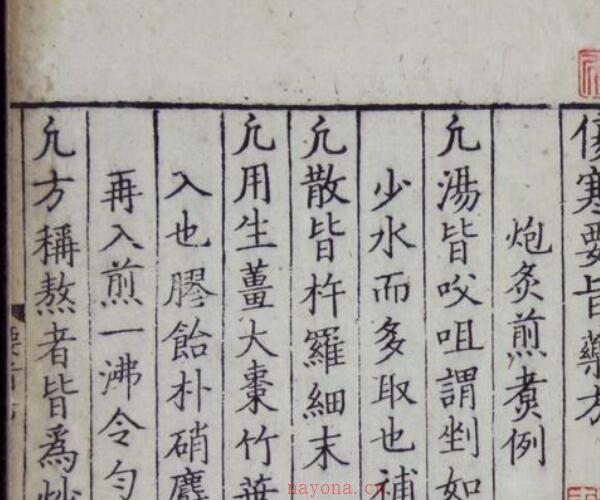 傷寒要旨藥方
炮炙煎煮例
凢湯皆㕮咀謂剉如
少水而多取也補
凢散皆杵羅細末
凢用生薑大棗竹葉
入也膠飴朴硝麝
再入煎一沸令勻
凢方稱熬者皆爲炒
nayona.cn